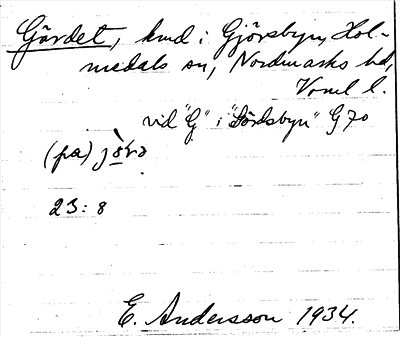 Gärdet, hmd i Gjörsbyn, Hol-
medals sn, Nordmarks hd,
Vrml l.
vid "G" i "Sördsbyn" G 70
(pa)
23: 8
E. Andersson 1934.